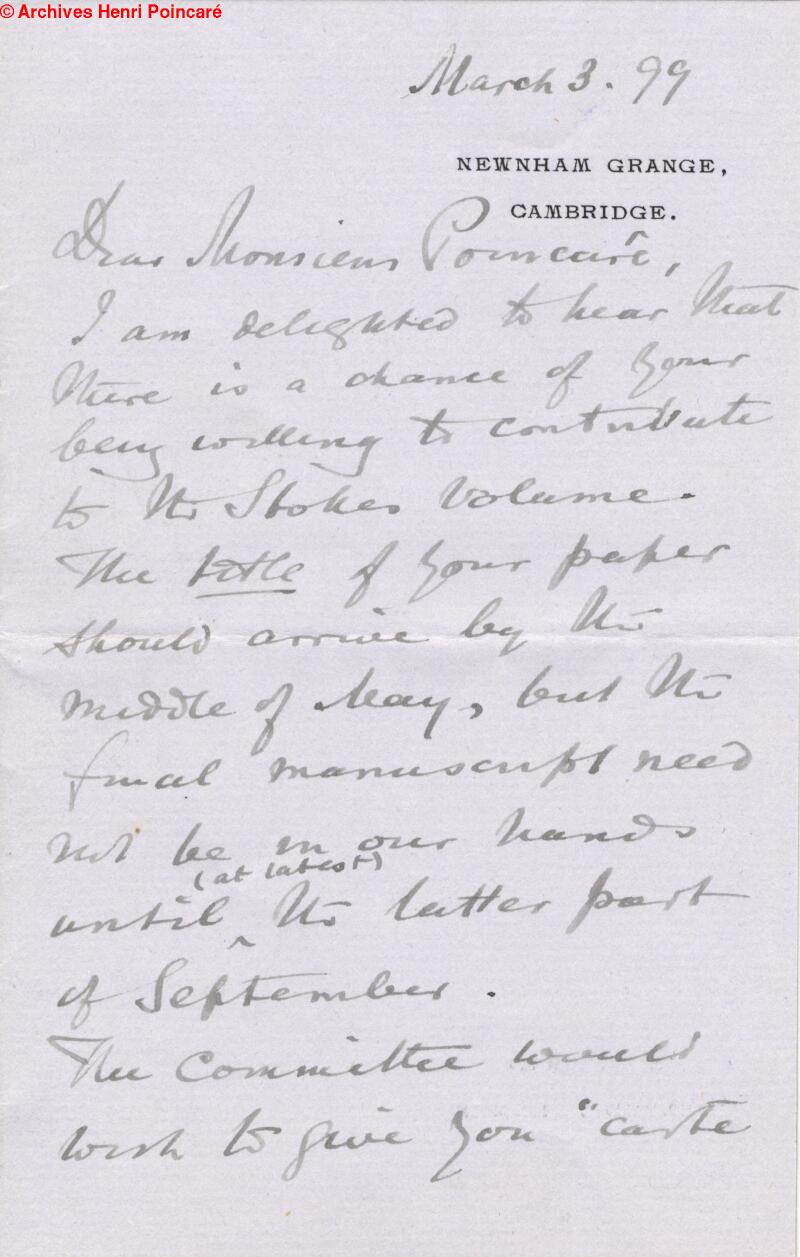 © Archives Henri Poincaré
March 3. 99
NEWNHAM GRANGE,
CAMBRIDGE.
Dear Monsieur Poincaré,
I am delighted to hear that
there is a chance of your
being willing to contribute
to the Stokes volume.
The title of your paper
should arrive by the
middle of May, but the
final manuscript need
not be in our hands
(at latest)
until ^ the latter part
of September.
The Committee would
wish to give you "carte